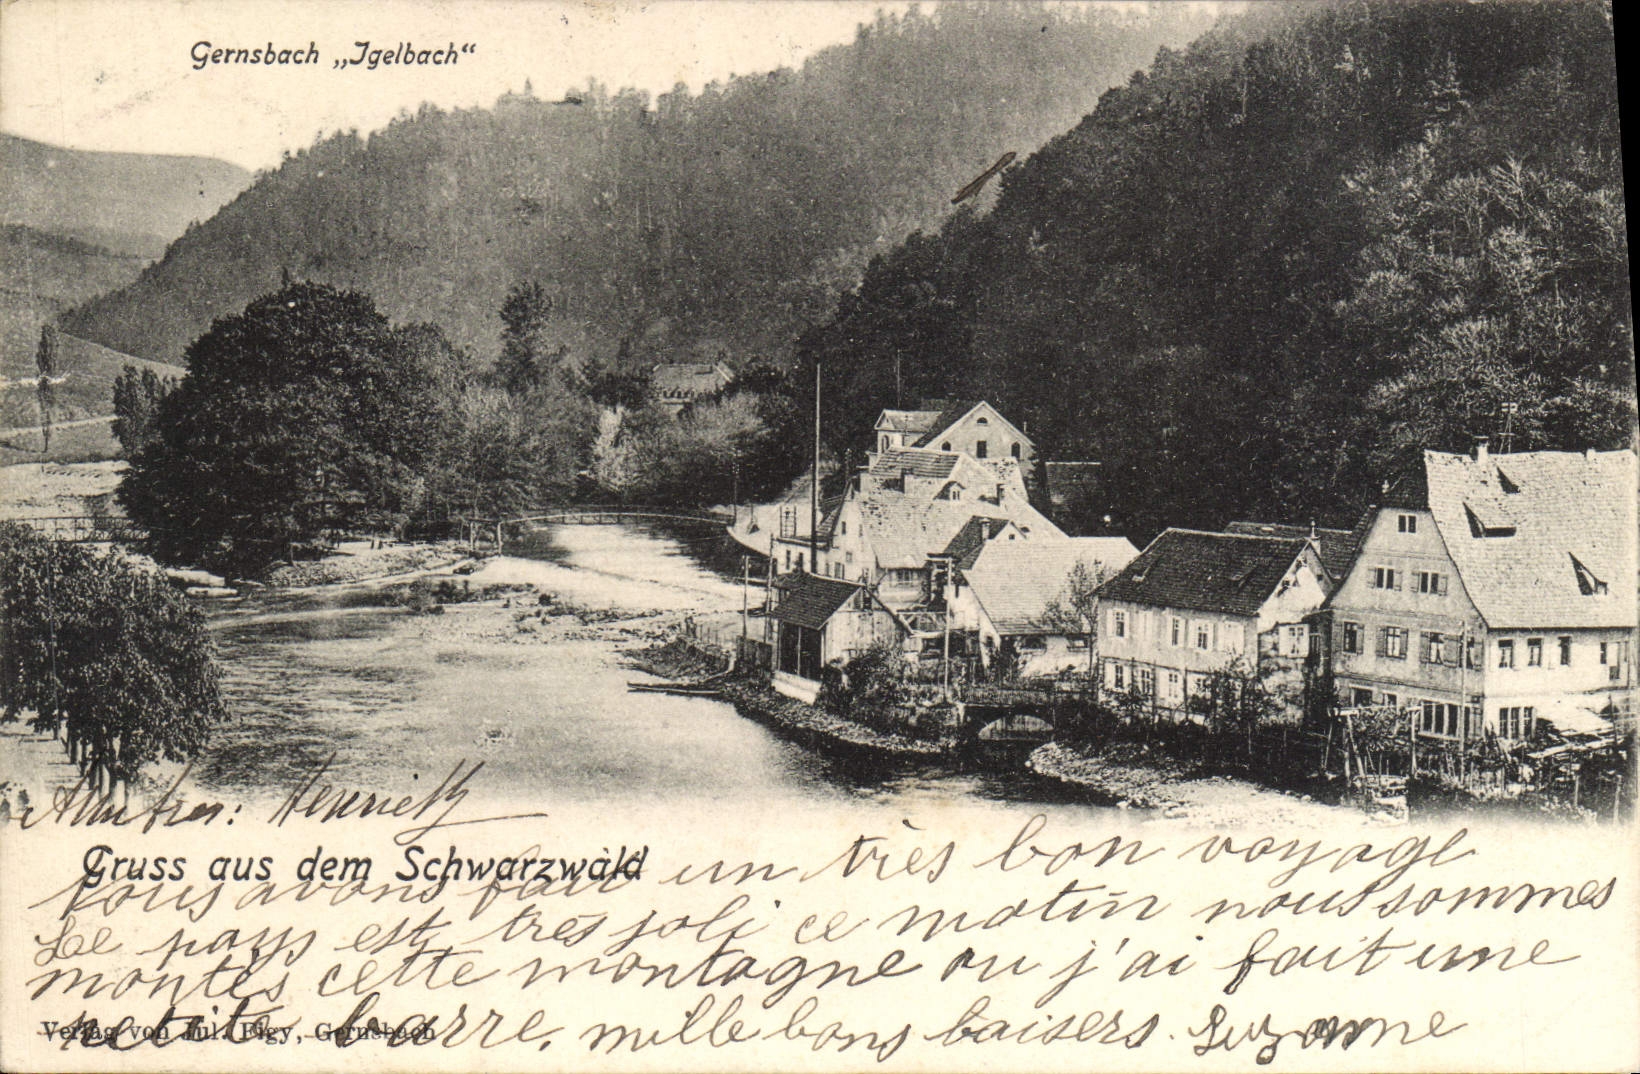 Gernsbach „Igelbach“
Henriett
Gruss aus dem Schwarzwald
nous avons fait un très bon voyage
Le pays est très joli ce matin nous sommes
montés cette montagne ou j'ai fait une
petite barre. mille bons baisers. Suzanne
Verlag von Jul. Figy, Gernsbach